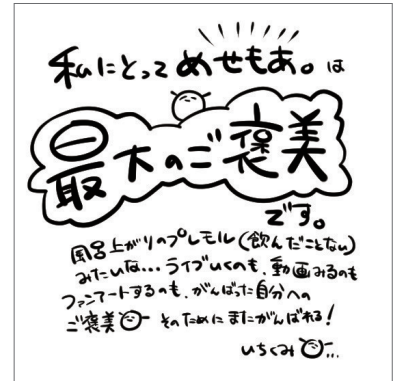 私にとって めせもあ。は
最大のご褒美
です。
風呂上がりのプレモル(飲んだことない)
みたいな...ライブいくのも、動画みるのも
ファンアートするのも、がんばった自分への
ご褒美 そのためにまたがんばれる!
いちくみ